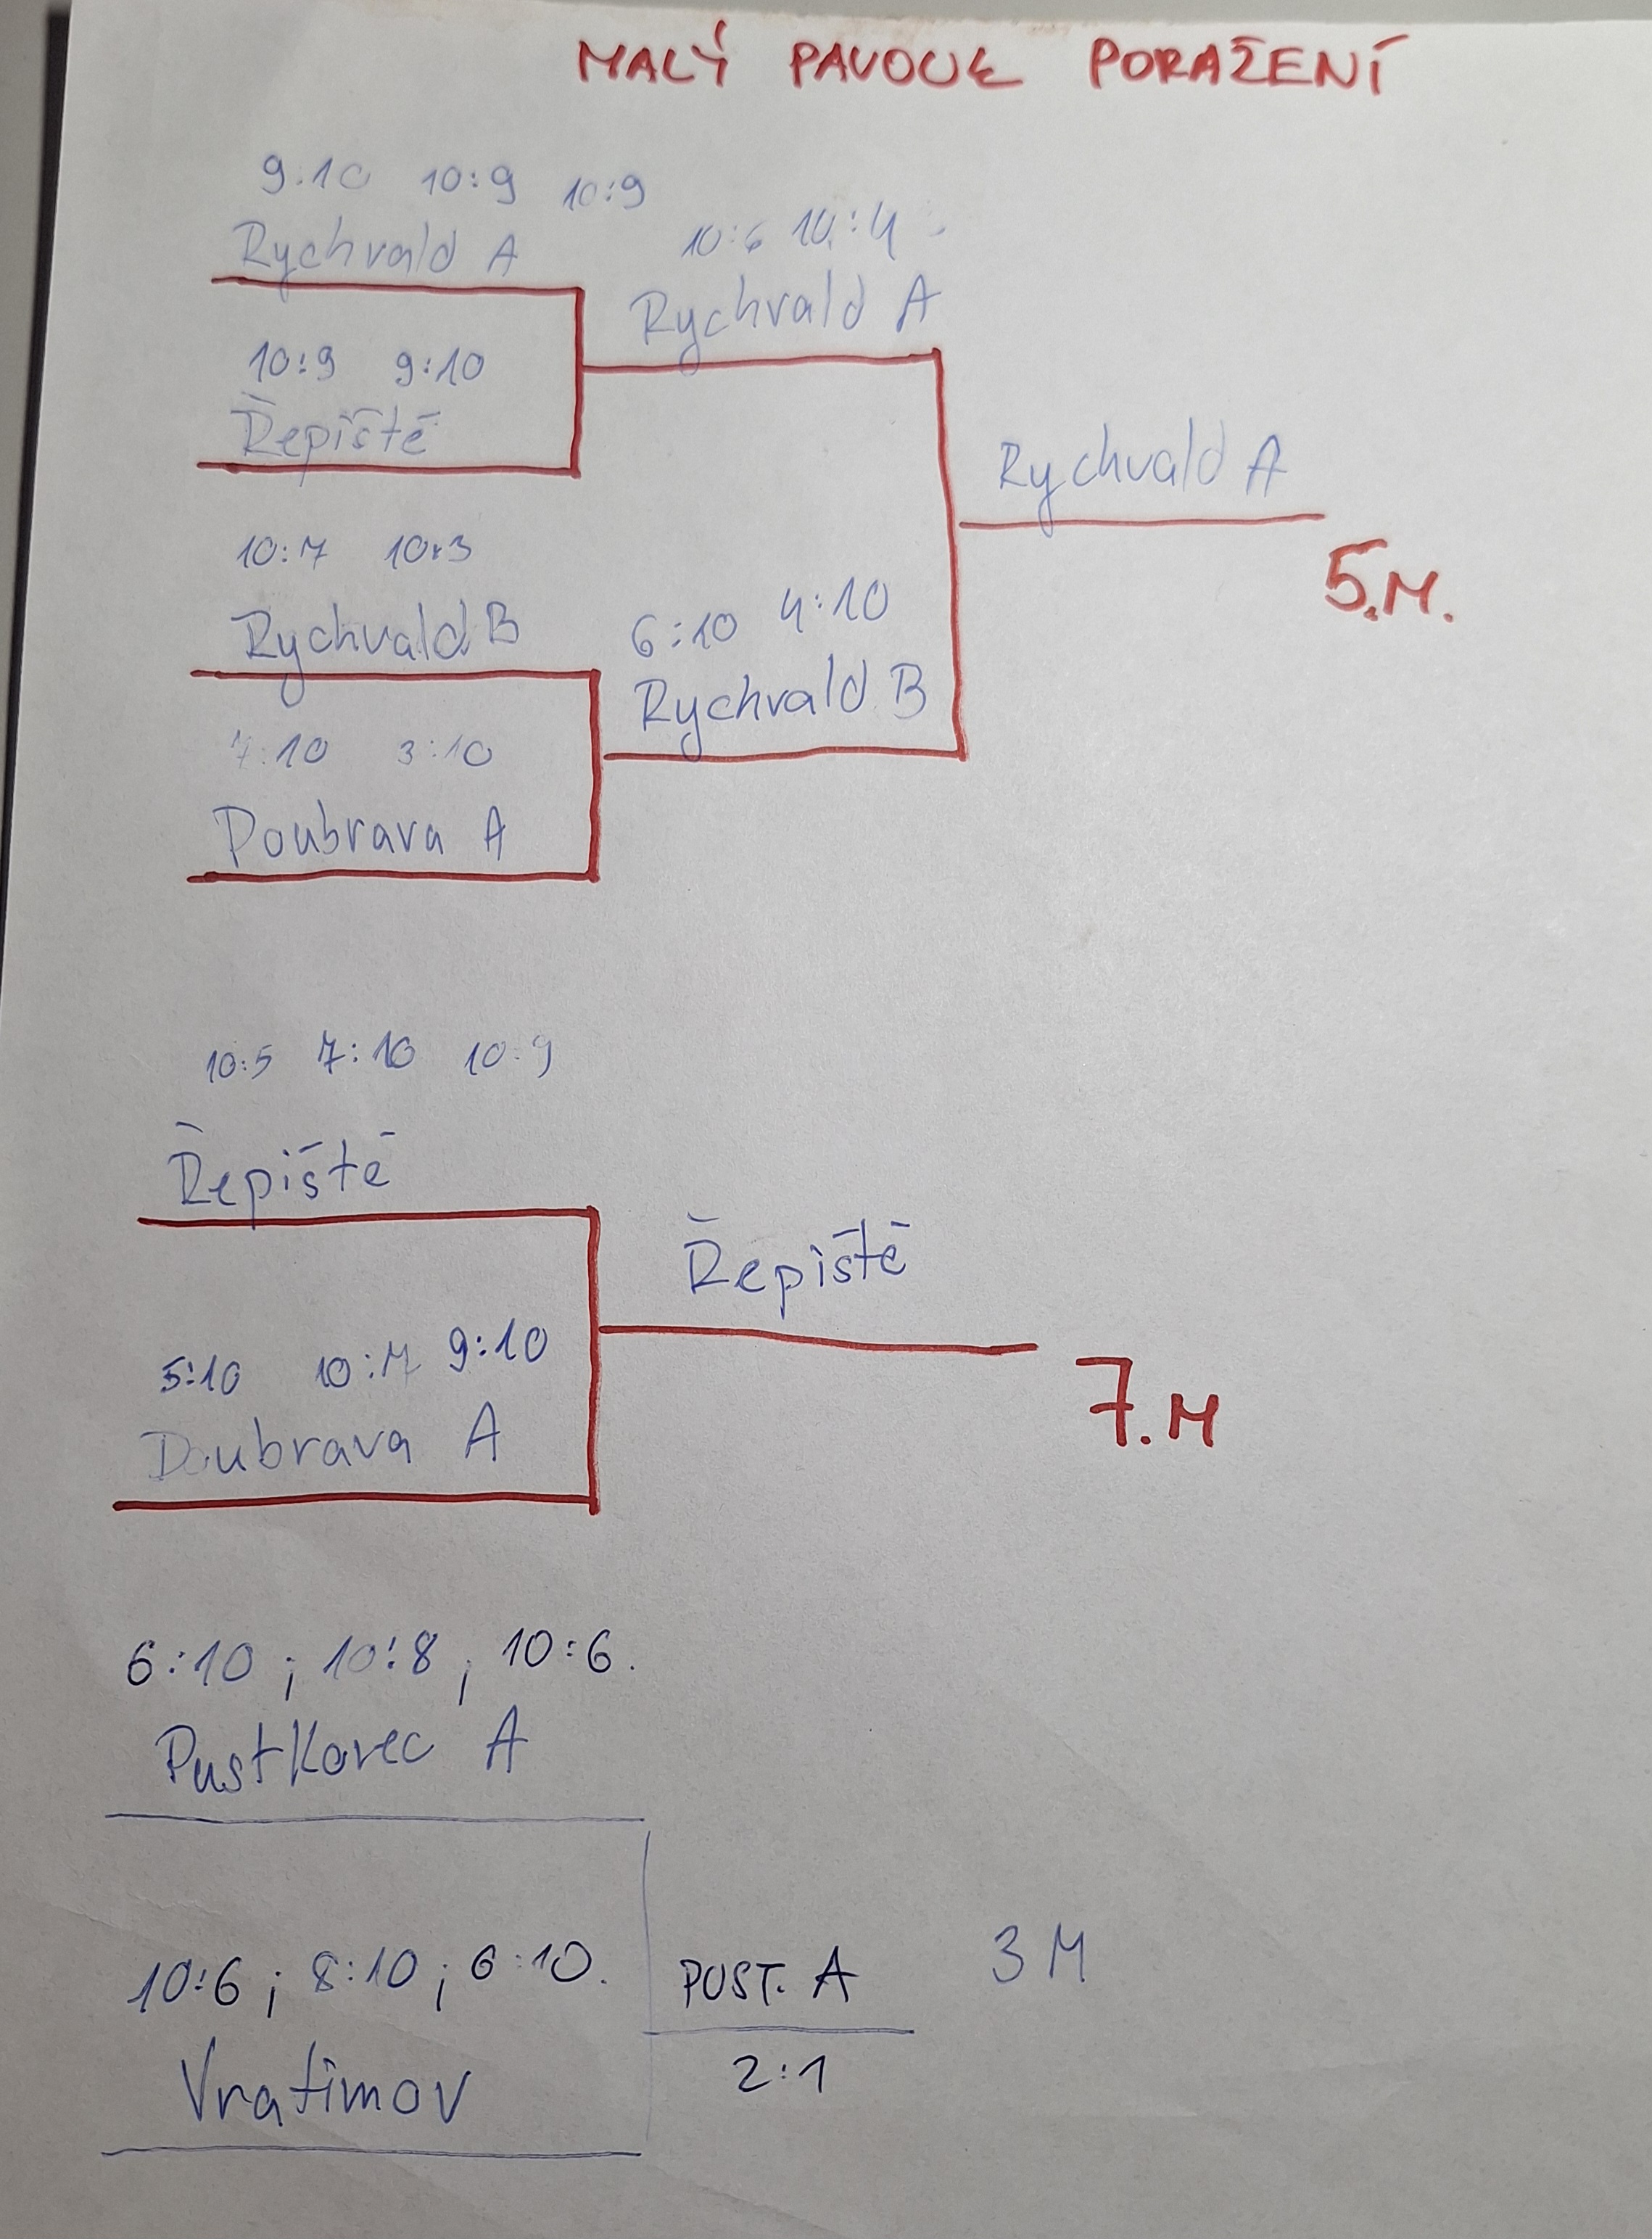 MALÝ PAVOUK PORAŽENÍ
9:10 10:9 10:9
Rychvald A
10:6 10:4
Rychvald A
10:9 9:10
Řepiště
Rychvald A
5.M.
10:7 10:3
Rychvald B
6:10 4:10
Rychvald B
7:10 3:10
Doubrava A
10:5 7:10 10:9
Řepiště
Řepiště
7.M
5:10 10:7 9:10
Doubrava A
6:10 ; 10:8 ; 10:6.
Pustkovec A
10:6 ; 8:10 ; 6:10.
Vratimov
POST. A
2:1
3 M